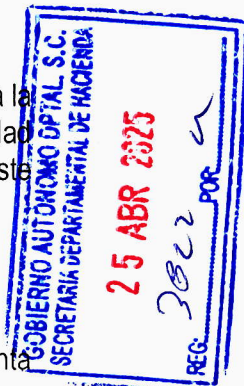 a la
dad
ste
nta
GOBIERNO AUTÓNOMO DPTAL. S.C.
SECRETARÍA DEPARTAMENTAL DE HACIENDA
25 ABR 2025
REG: 3822 POR: